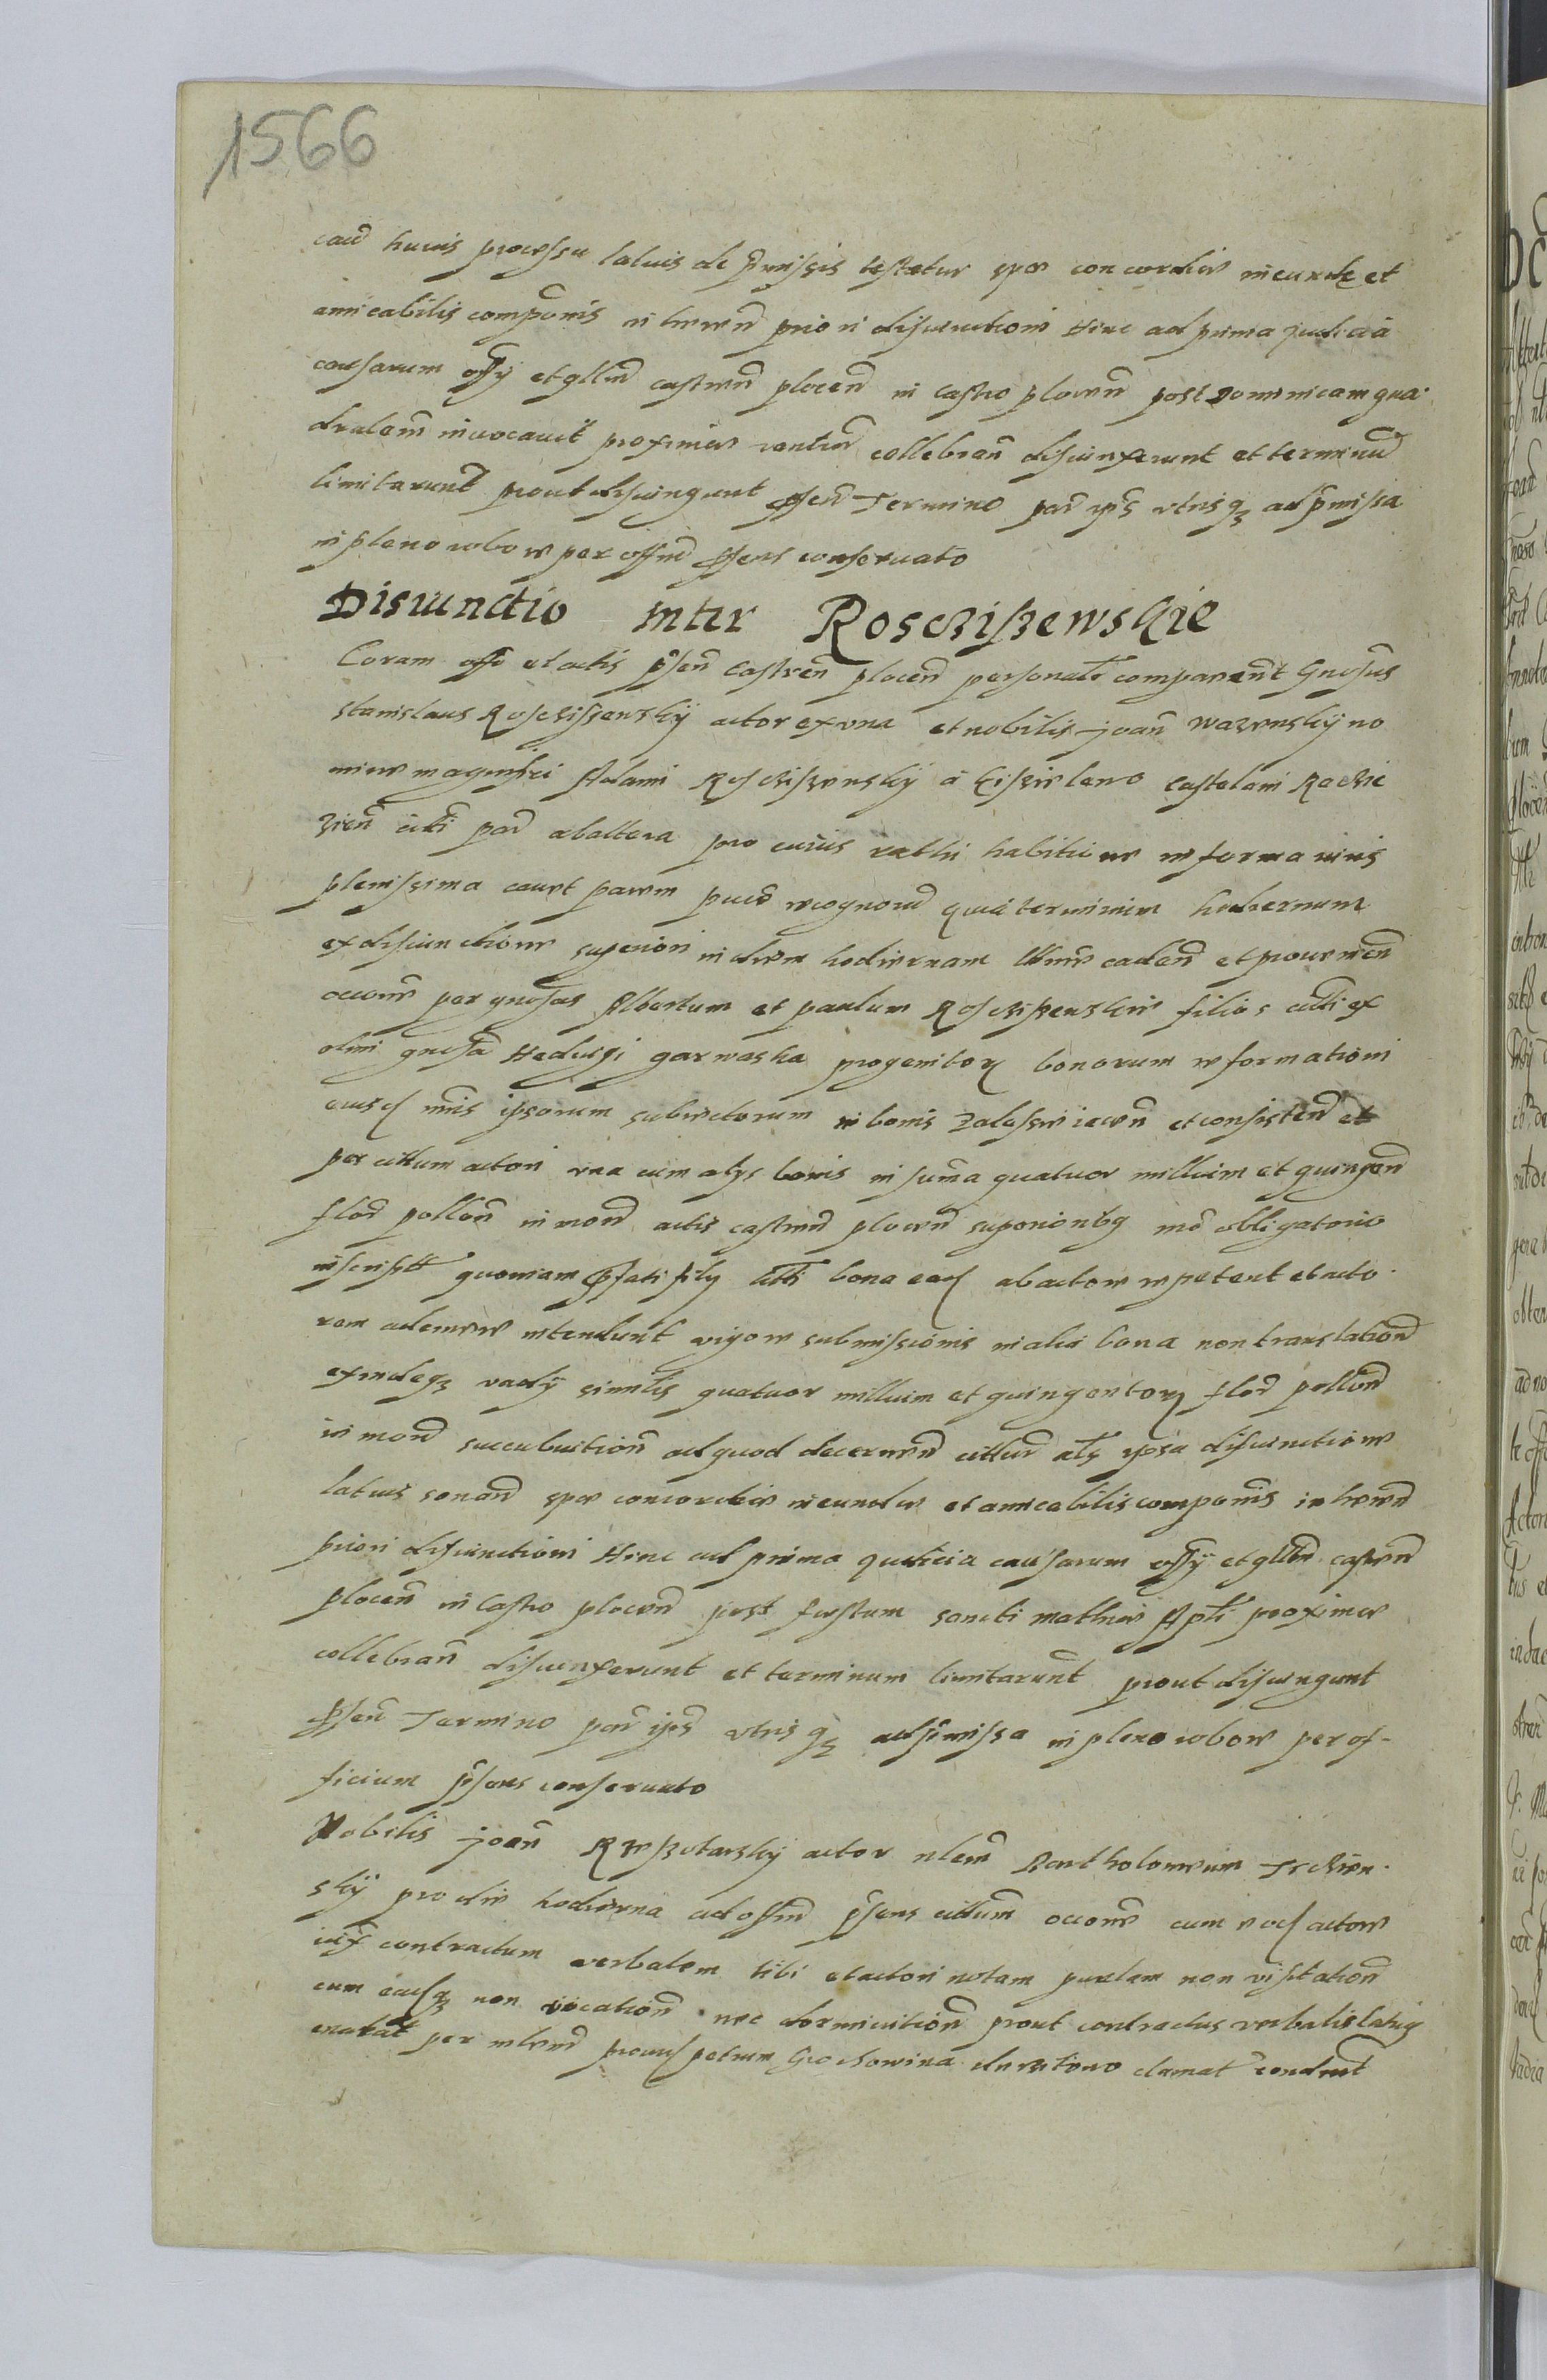 1566
cau huius processu latius de pmissis testatur spe concordie ineunde et
amicabilis componis inheren priori disiunctioni Hinc ad prima judicia
causarum offy et gllm castren plocen in Castro plocen post Dominicam qua
dralem inuocauit proxime ventur cellebran disiunxerunt et terminu
limitarunt prout disiungunt psen Termino par ips vtrisq ad pmissa
in pleno robore per offm psens conseruato
Disiunctio inter Roscziszewskie
Coram offo et actis psen Castren plocen personalr comparent Gnosus
Stanislaus Roscziszewsky actor ex vna et nobilis joan wazensky no
mine magnifici Adami Roscziszewsky a castelani Raczie
zien citti par ab altera pro cuius rathi habitione in forma iuris
plenissima cauet parem pucu recognoru quia terminum hodiernum
ex disiunctione superiori in diem hodiernam caden et proueniен
occone per gnosos Albertum et paulum Roscziszewskie filios citti ex
olim gnosa Hedwigi garwaska progenitor bonorum reformationi
eiusd mris ipsorum subiectorum in bonis et consisten et
per cittum actori vna cum alys bonis in suma quatuor millium et quingen
flor pollon in mon actis castren plocen superioribq mo obligatorio
inscriptt quoniam pfati fily citti bona ead ab actore repetent et acto
rem adimere intendunt vigore submissionis in alia bona non translation
exindeq vady similis quatuor millium et quingentor flor pollon
in mon succubuition ad quod decernen cittur als ipsa disiunctione
latius sonan spe concordie ineunde et amicabilis componis inheren
priori disiunctioni Hinc ad prima judicia causarum offy et gllm castren
plocen in Castro plocen post festum sancti mathie Apli proxime
cellebran disiunxerunt et terminum limitarunt prout disiungunt
psen Termino par ips vtrisq ad pmissa in pleno robore per of-
ficium psens conseruato
Nobilis joan actor nlem Bartholomeum
sky pro die hodierna ad offm psens cittum occone cum eod actore
iux contractum verbalem tibi et actori notam puellam non
cum eadq non vocation nec dormicition prout contractus verbalis latiq
enarrat per nlem petrum clamat condemt